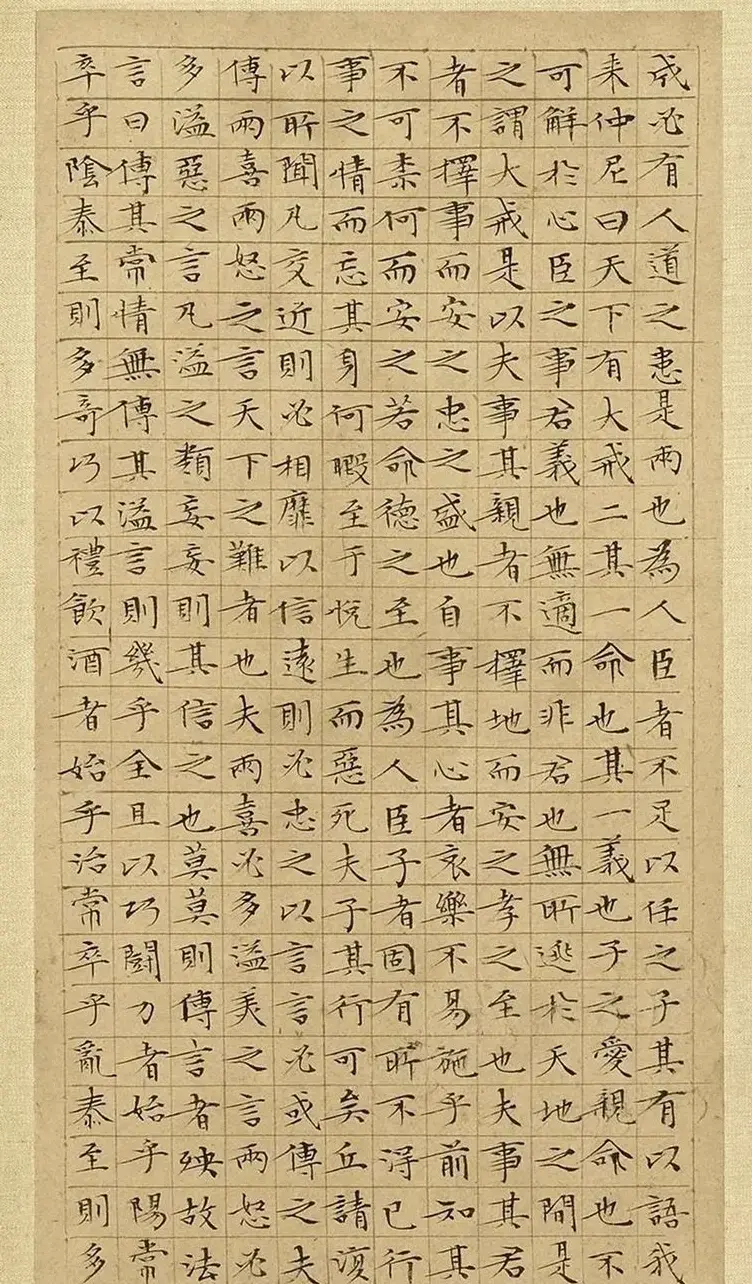 成必有人道之患是兩也為人臣者不足以任之子其有以語我
来仲尼曰天下有大戒二其一命也其一義也子之愛親命也不
可解於心臣之事君義也無適而非君也無所逃於天地之間是
之謂大戒是以夫事其親者不擇地而安之孝之至也夫事其君
者不擇事而安之忠之盛也自事其心者哀樂不易施乎前知其
不可柰何而安之若命德之至也為人臣子者固有所不得已行
事之情而忘其身何暇至于悅生而惡死夫子其行可矣丘請復
以所聞凡交近則必相靡以信遠則必忠之以言言必或傳之夫
傳兩喜兩怒之言天下之難者也夫兩喜必多溢美之言兩怒必
多溢惡之言凡溢之類妄妄則其信之也莫莫則傳言者殃故法
言曰傳其常情無傳其溢言則幾乎全且以巧鬭力者始乎陽常
卒乎陰泰至則多奇巧以禮飲酒者始乎治常卒乎亂泰至則多